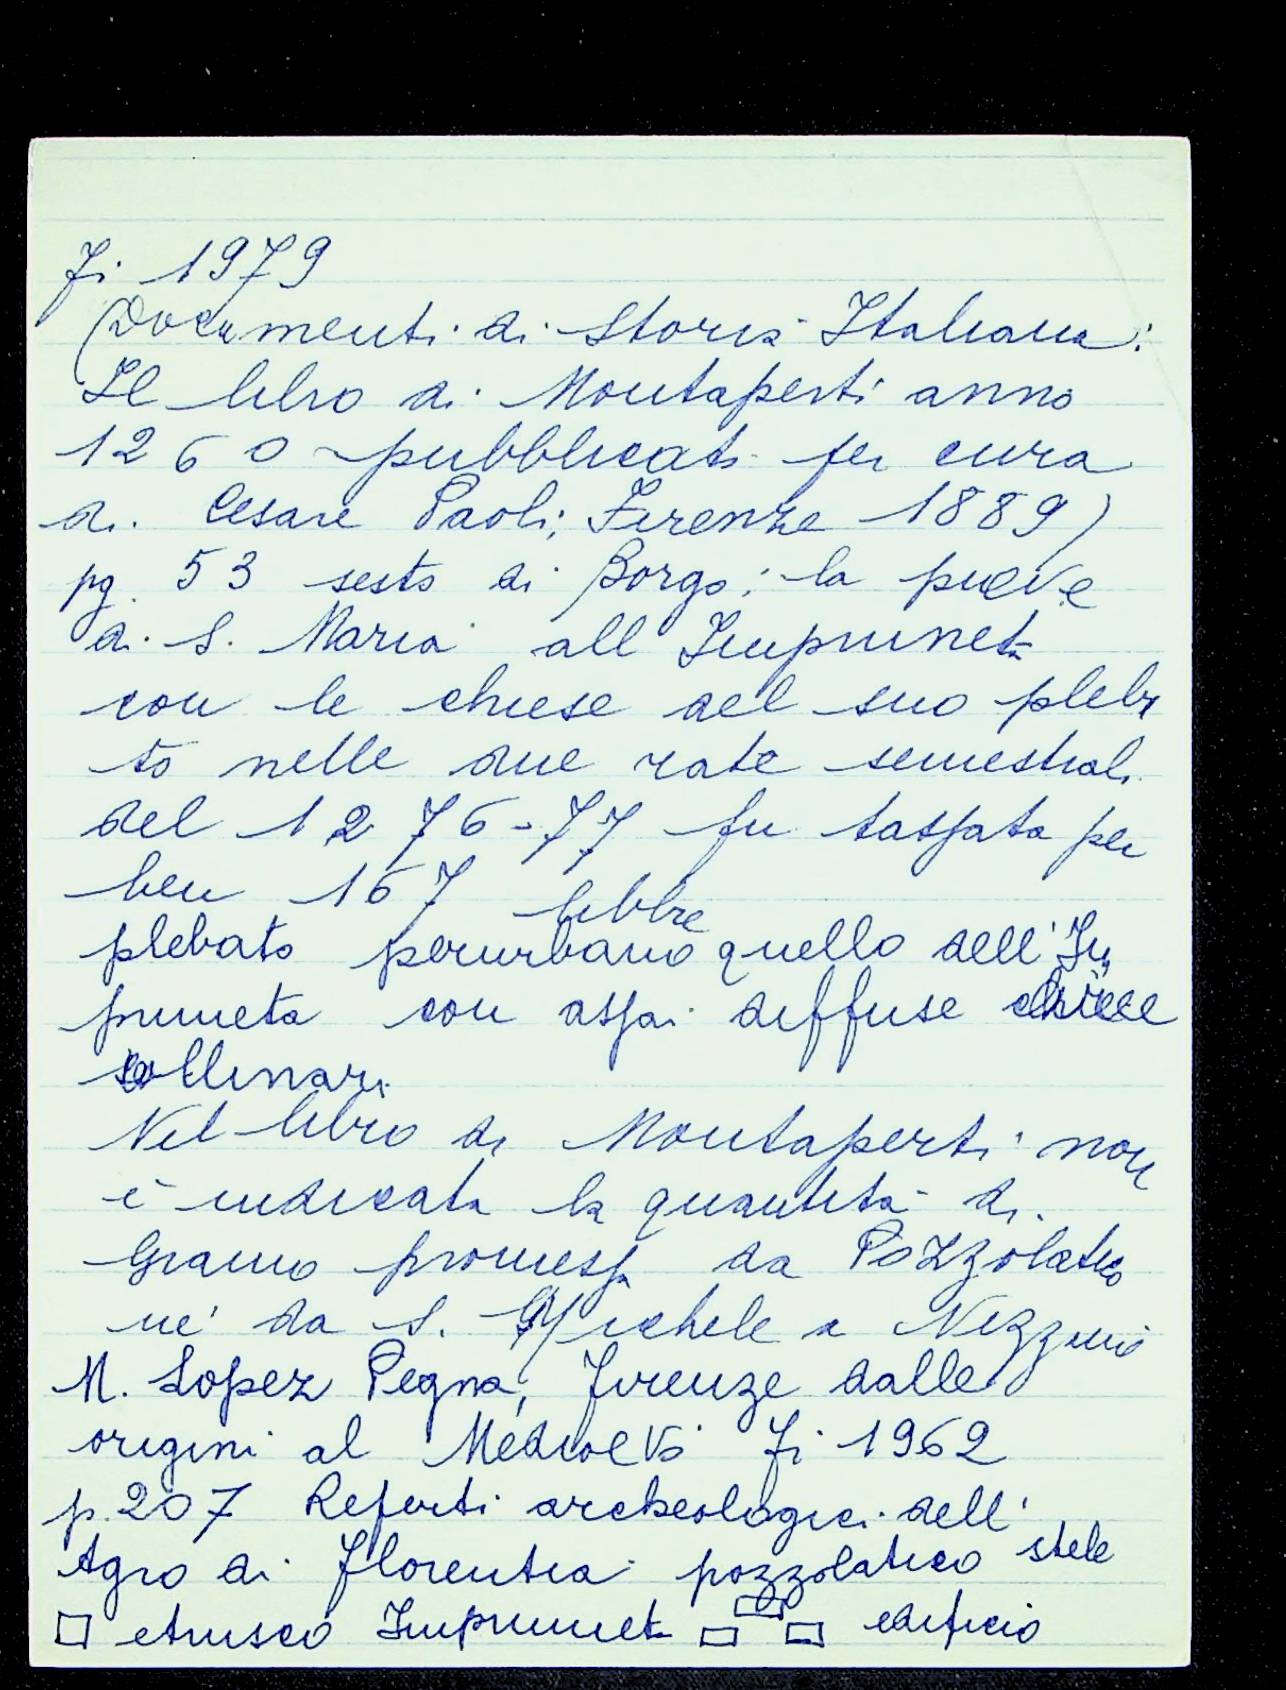 Fi 1979
(Documenti di Storia Italiana:
Il libro di Montaperti anno
1260 - pubblicato per cura
di Cesare Paoli; Firenze 1889)
pg. 53 sesto di Borgo: la pieve
di S. Maria all Impruneta
con le chiese del suo pleba
to nelle due rate semestrali
del 1276-77 fu tassata per
ben 167 libbre
plebato periurbano quello dell'Im
pruneta con assai diffuse chiese
collinari
Nel libro di Montaperti non
è indicata la quantità di
Grano promessa da Pozzolatico
nè da S. Michele a Nizzano
M. Lopez Pegna, Firenze dalle
origini al Medioevo Fi 1962
p. 207 Referti archeologici dell'
Agro di Florentia pozzolatico stele
□ etrusco Impruneta □ □ □ edificio